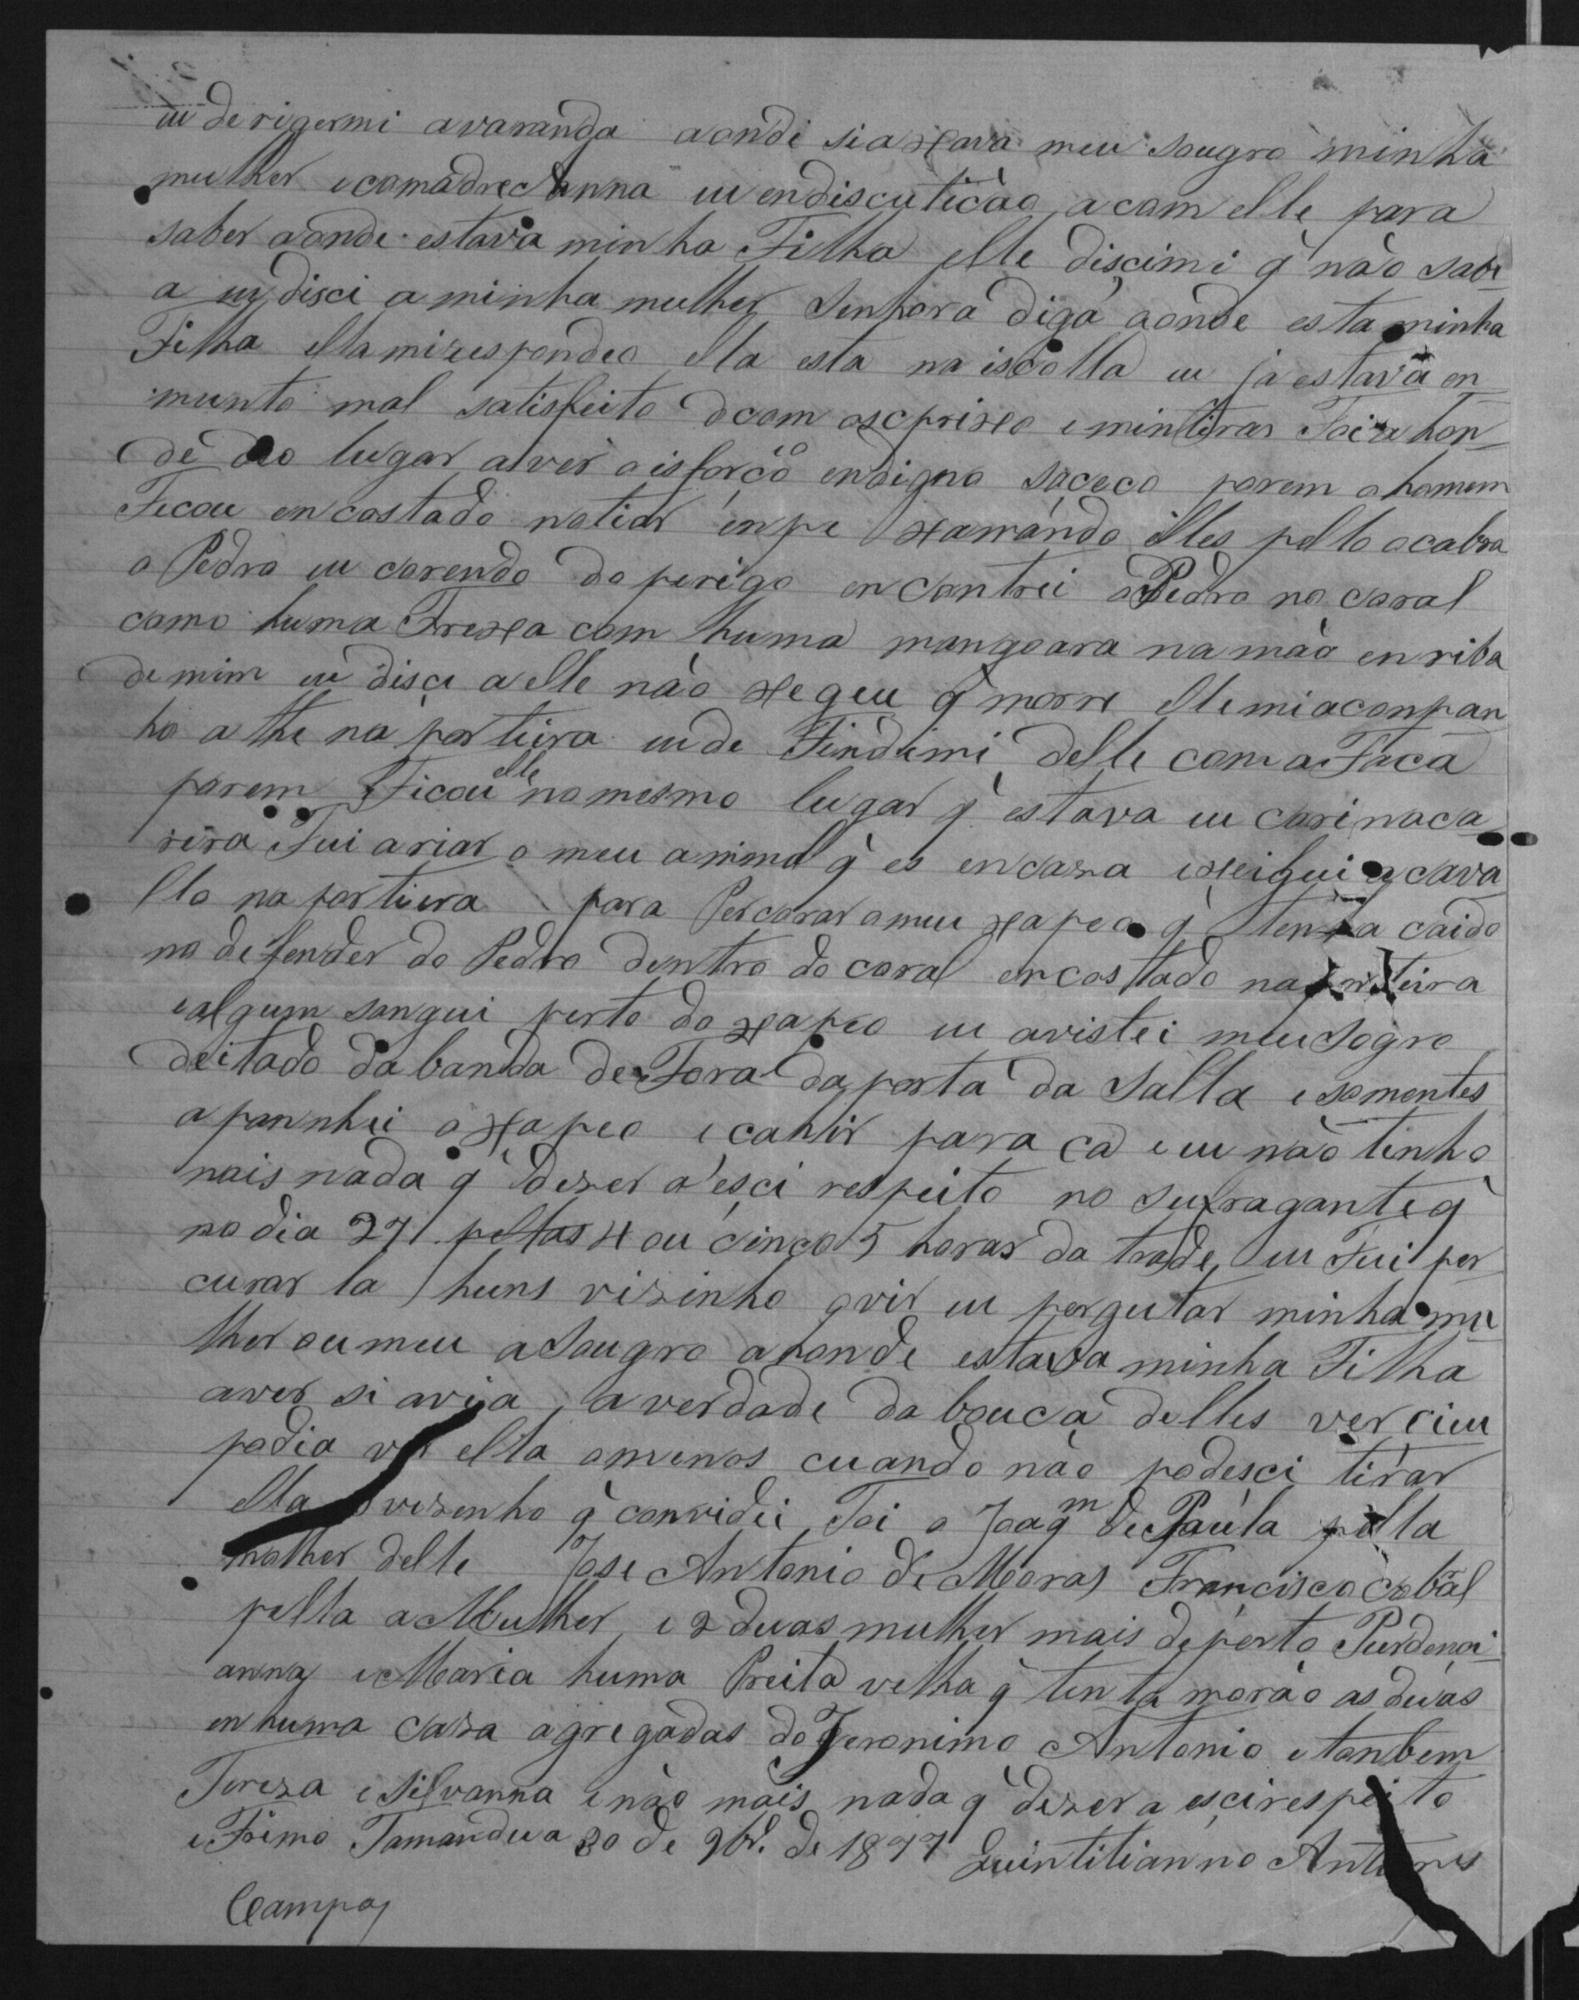 eu derigermi avaranda aondi siaxava meu sougro minha
mulher ecomadre Anna eu endiscutição acom elle para
saber aonde estava minha Filha elle discimi q̀ não sabi
a eu disci aminha mulher Senhora diga aonde esta minha
Filha ella mirespondeo ella esta na iscolla eu ja estava en
munto mal satisfeito dcom ascprixo emintiras Foi a hon
de deo lugar aver oisforço endigno saceco porem ohomem
Ficou encostado notiar enpe xamando elles pello acabra
o Pedro eu corendo do perigo encontrei oPedro no coral
como huma Frexa com huma mangoara namão enriba
demim eu disci aelle não xegeu q̀ morre elle miaconpan
ho athe na porteira eu de Findimi delle com aFaca
porem Ficou elle nomesmo lugar q̀ estava eu cori naca
reira Fui ariar o meu animal q̀ es encaza exeigui acava
llo na porteira para Percorar omeu xapeo q̀ tenha caido
no defender do Pedro dentro do coral encostado na porteira
ealgum sangui perto do xapeo eu avistei meu Sogro
deitado da banda deFora da porta da Salla esomentes
apannhei oxapeo ecahir para ca eeu não tinho
mais nada q̀ dezer a esci respeito no sufragante q̀
no dia 27 pellas 4 ou cinco 5 horas da trade eu Fui per
curar la huns vizinho ovir eu pergutar minha mu
lher oumeu aSougro aronde estava minha Filha
aver si avia averdade da bouca delles ver cieu
podia ver ella omenos cuando não podesci tirar
ella o vezenho q̀ convidei Foi o Joaqm de Paula pella
molher delle Jose Antonio de Moras Francisco Cabal
pella aMulher e 2 duas mulher mais deperto Purdenci
anna eMaria huma Preita velha q̀ tenta morão asduas
enhuma caza agregadas do Jeronimo Antonio etanbem
Tereza eSilvanna enão mais nada q̀ dezer a escirespeito
eFrimo Tamandua 30 de 9br. de 1877 Quintilianno Antunes
Campos